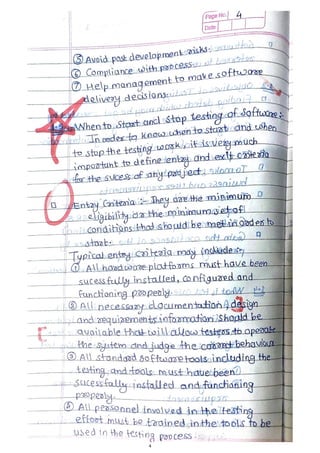 Page No. 4
Date
⑤ Avoid post development risks.
⑥ Compliance with process
⑦ Help management to make software
delivery decisions.
When to start and stop testing of software :-
In order to know when to start and when
to stop the testing work, it is very much
important to define entry and exit criteria
for the sucess of any project.
Entry Criteria :- They are the minimum
eligibility or the minimum set of
conditions that should be met in order to
start.
Typical entry criteria may include :
① All hardware platforms must have been
sucessfully installed, configured and
functioning properly.
② All necessary documentation, design
and requirements information should be
available that will allow testers to operate
the system and judge the correct behaviour
③ All standard software tools including the
testing and tools must have been
sucessfully installed and functioning
properly.
⑤ All personnel involved in the testing
effort must be trained in the tools to be
used in the testing process.
4